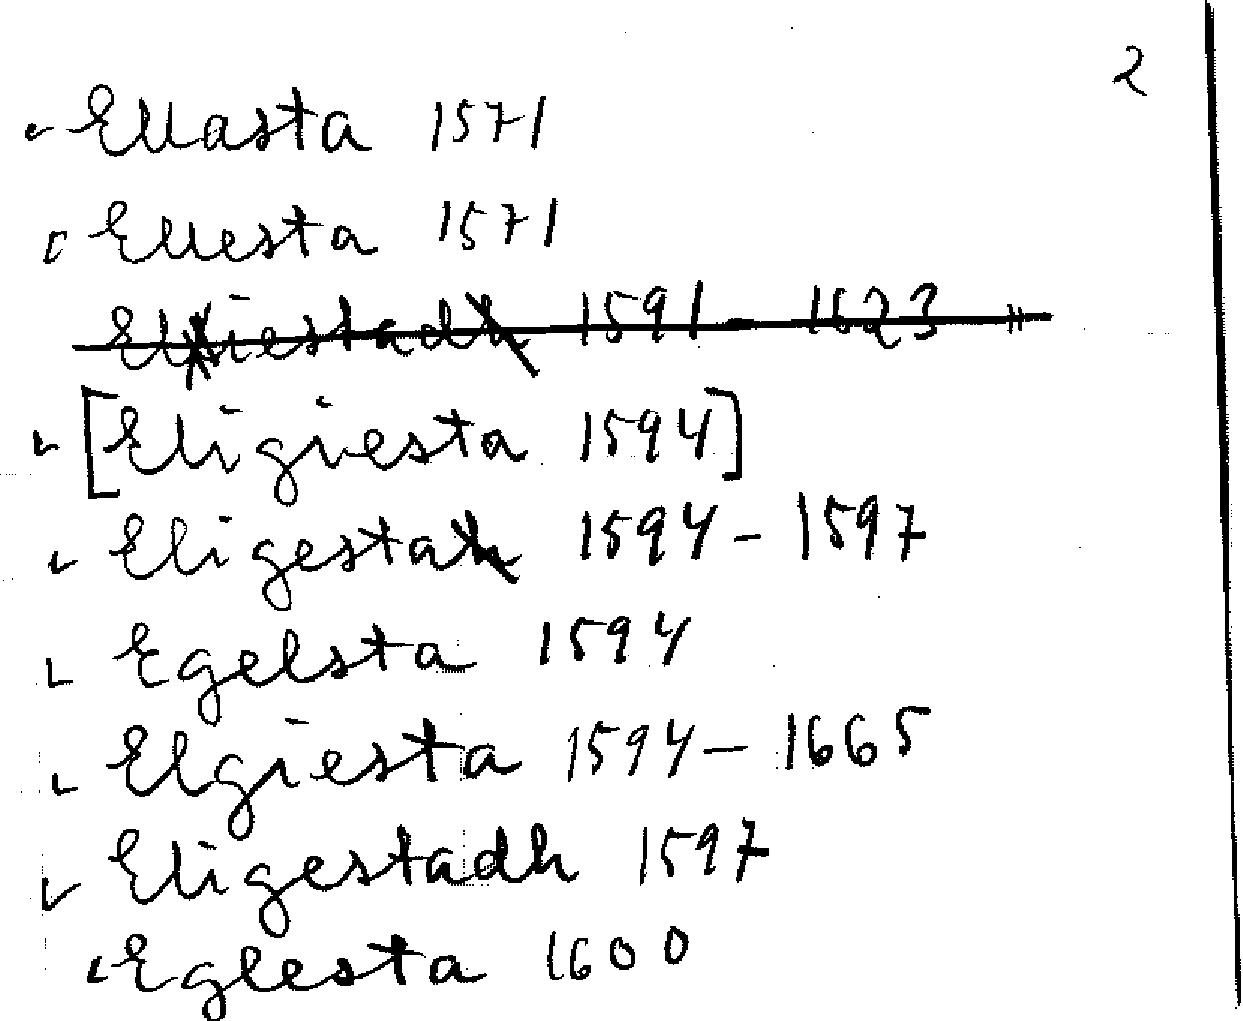 2
Ellasta 1571
Ellesta 1571
1591 - 1623
[Eligiesta 1594]
Eligesta 1594 - 1597
Egelsta 1594
Elgiesta 1594 - 1665
Eligestadh 1597
Eglesta 1600